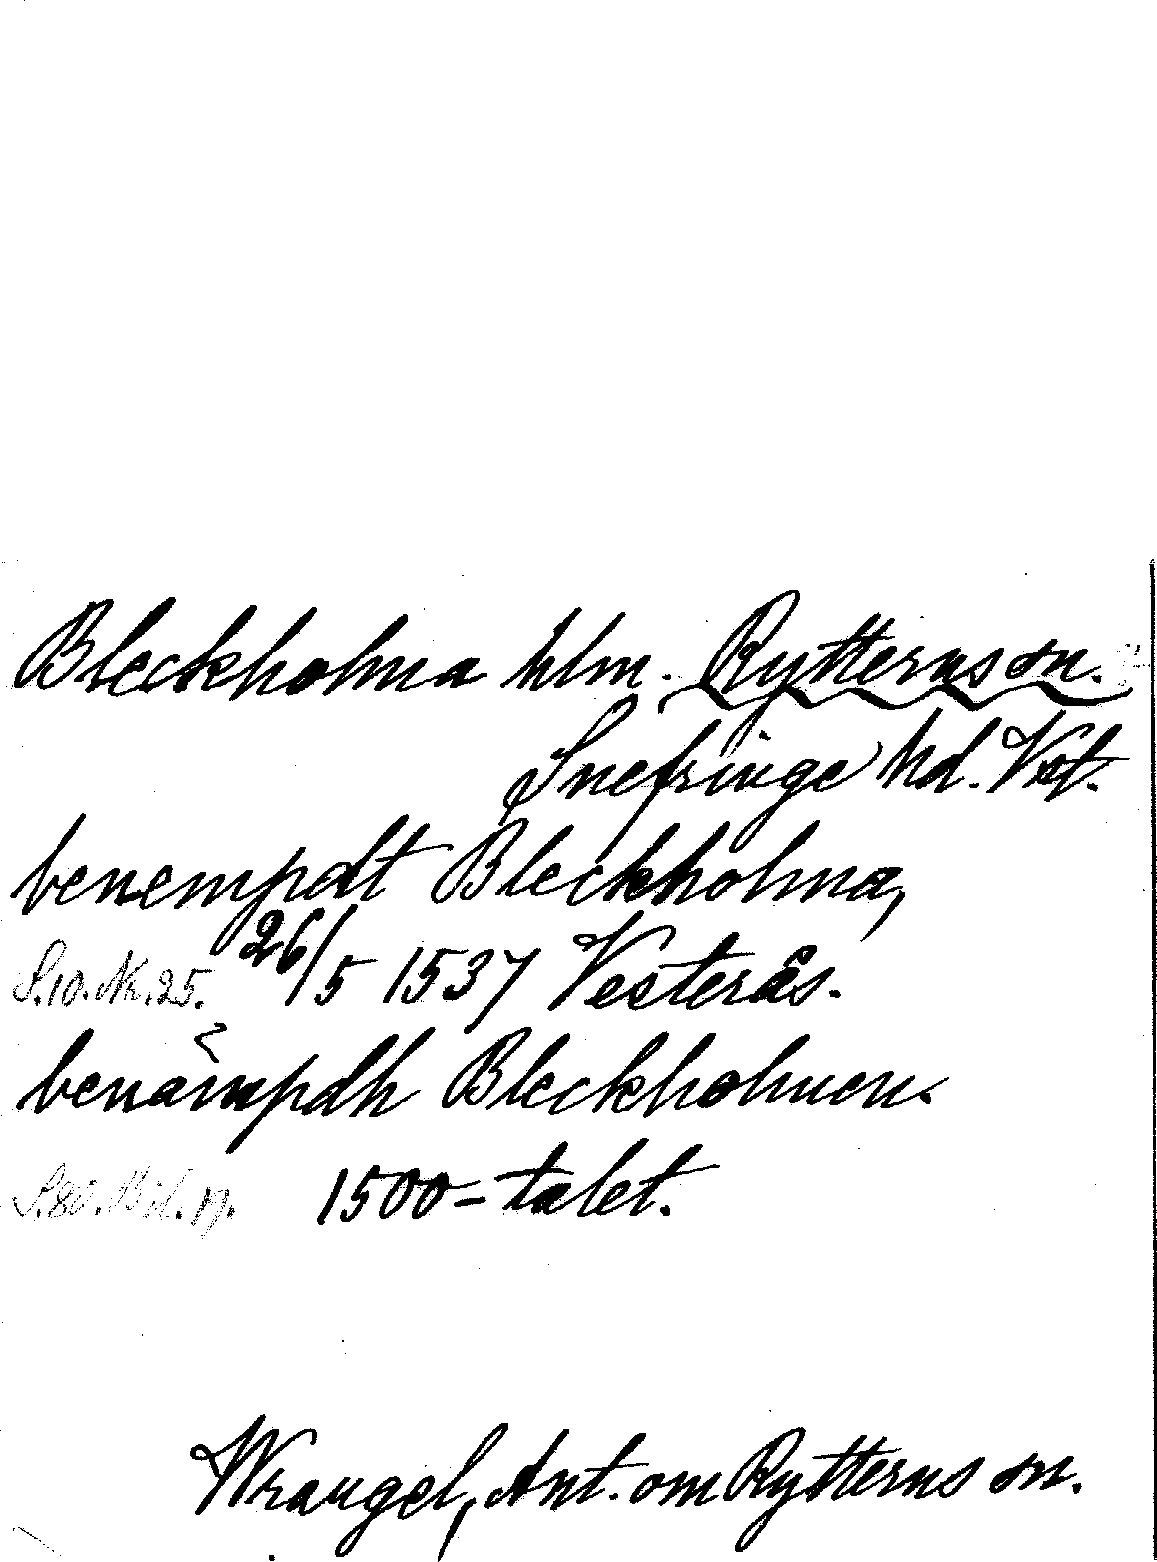 Bleckholma hlm. Rytterns sn.
Snefringe hd. Vst.
benempdt Bleckholma,
S.10. Nr. 25. 26/5 1537 Vesterås.
benämpdh Bleckholmen.
S.80. Bil. 17. 1500-talet.
Wrangel, Ant. om Rytterns sn.